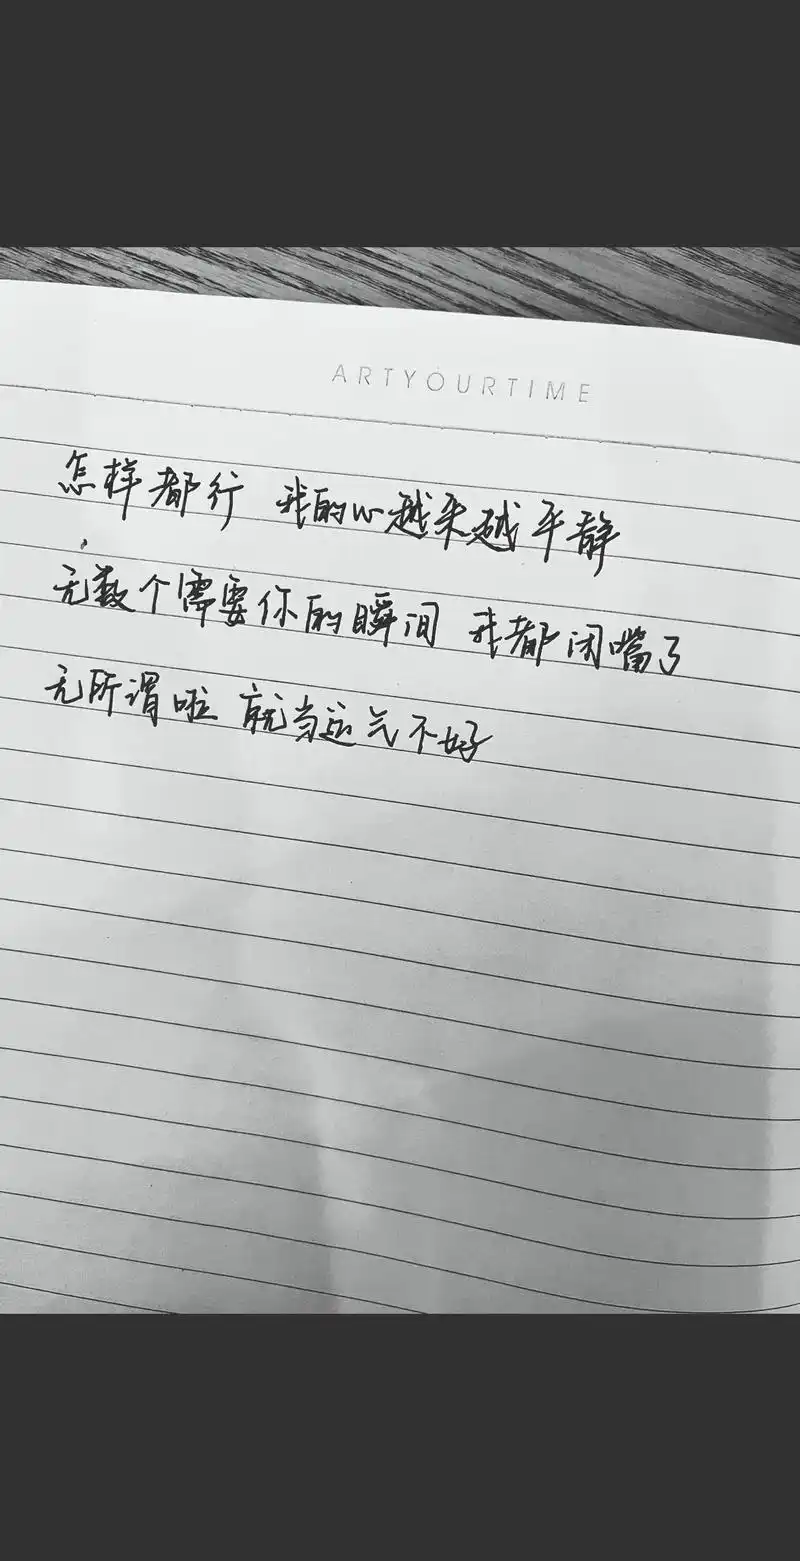 ARTYOURTIME
怎样都行 我的心越来越平静
无数个需要你的瞬间 我都闭嘴了
无所谓啦 就当运气不好